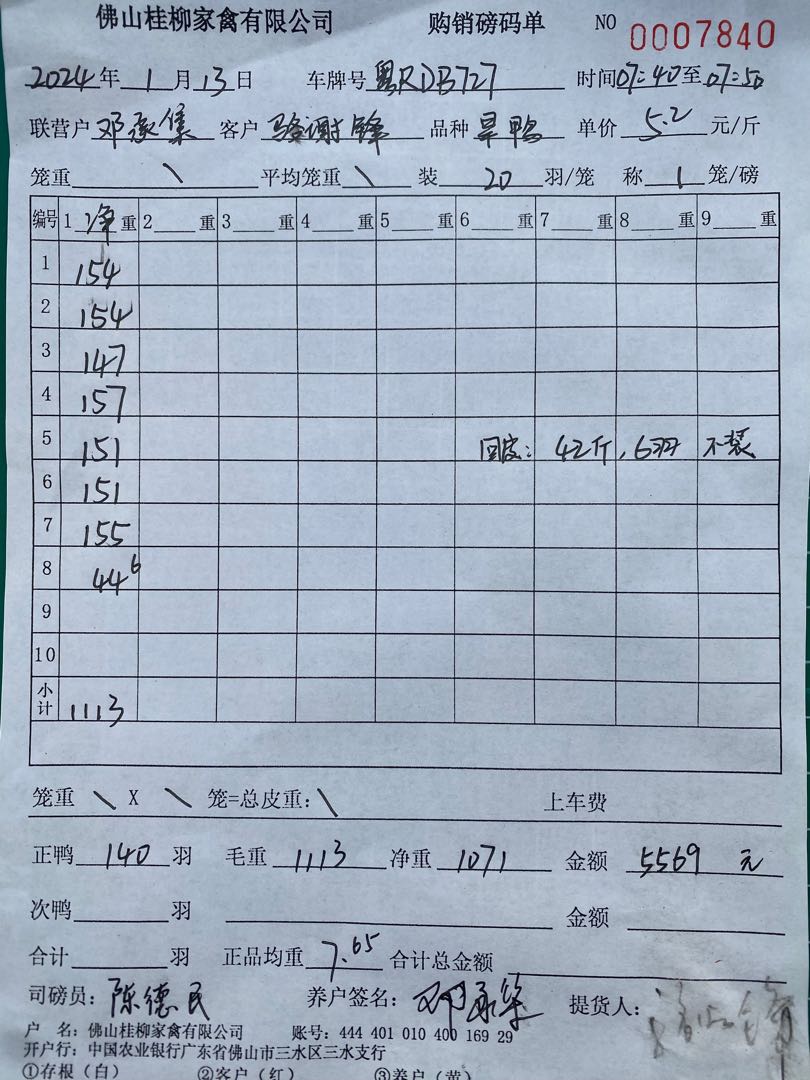 佛山桂柳家禽有限公司 购销磅码单 NO 0007840
2024年 1 月 13 日 车牌号 粤RDB727 时间07:40至07:50
联营户 邓承集 客户 骆谢锋 品种 旱鸭 单价 5.2 元/斤
笼重 \ 平均笼重 \ 装 20 羽/笼 称 1 笼/磅
编号 1 净 重 2 重 3 重 4 重 5 重 6 重 7 重 8 重 9 重
1 154
2 154
3 147
4 157
5 151 回皮: 42斤, 6羽 不装
6 151
7 155
8 44 6
9
10
小计 1113
笼重 \ X \ 笼=总皮重: \ 上车费
正鸭 140 羽 毛重 1113 净重 1071 金额 5569 元
次鸭 羽 金额
合计 羽 正品均重 7.65 合计总金额
司磅员: 陈德民 养户签名: 邓承华 提货人:
户 名: 佛山桂柳家禽有限公司 账号: 444 401 010 400 169 29
开户行: 中国农业银行广东省佛山市三水区三水支行
①存根(白) ②客户(红) ③养户(黄)